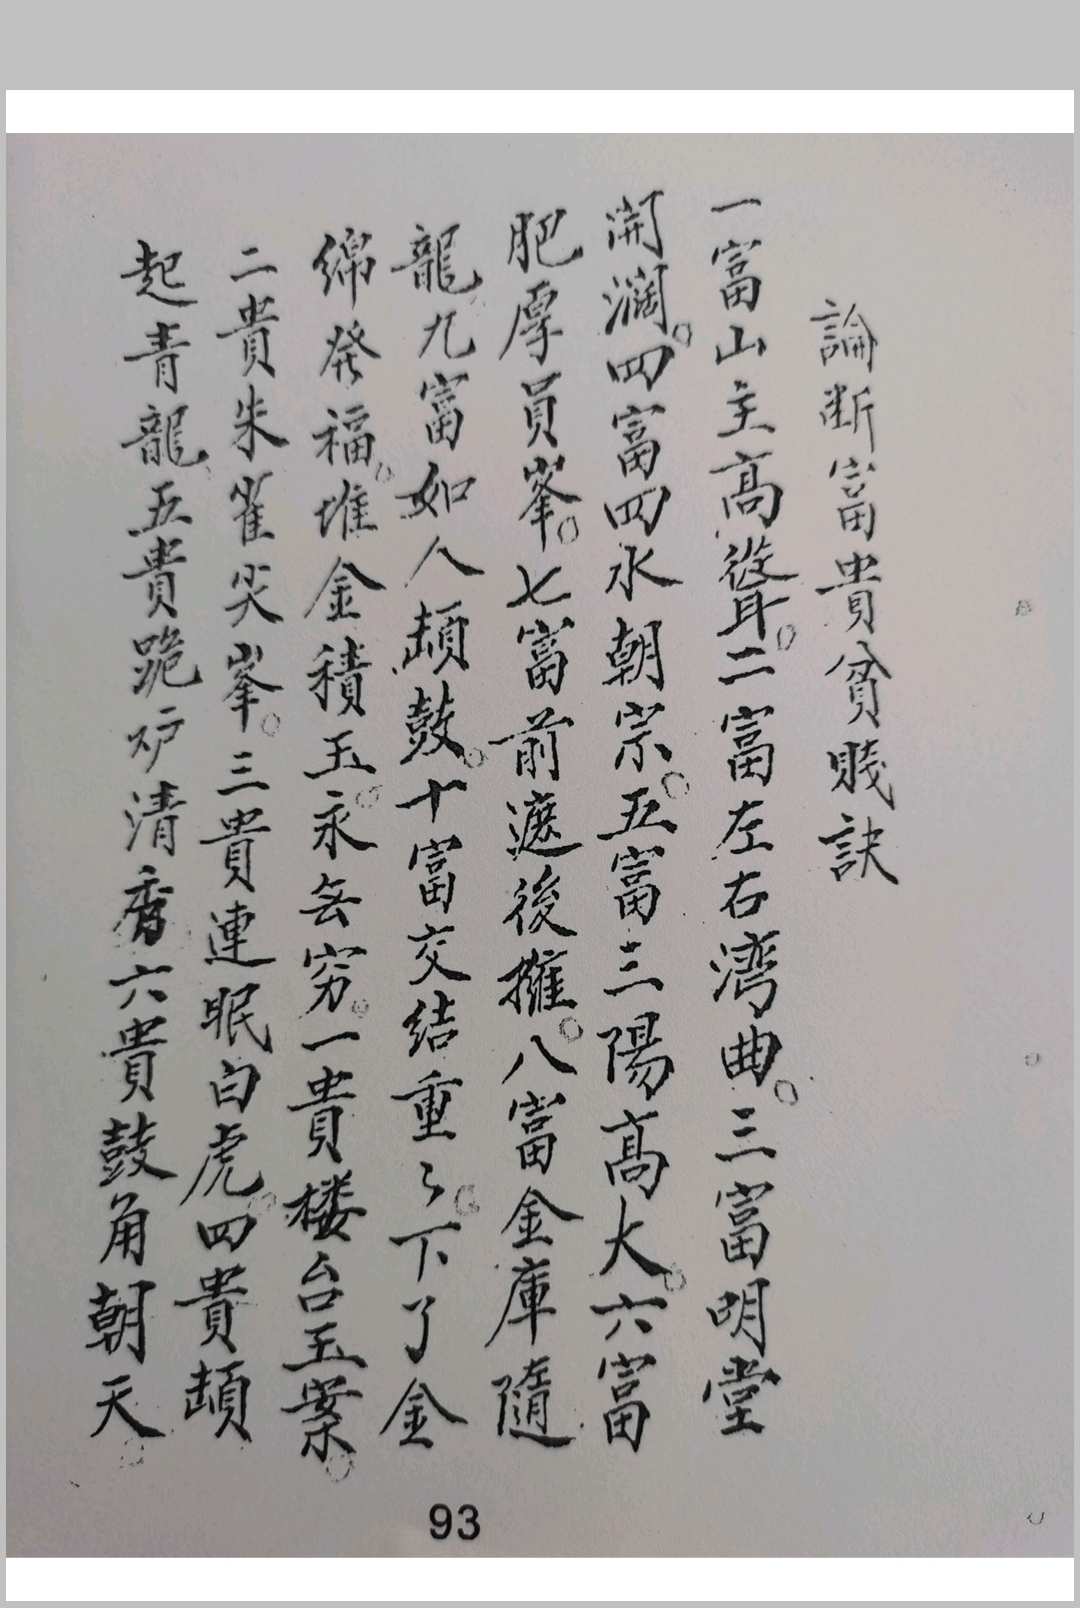 論断富貴貧賤訣
一富山主高聳。二富左右湾曲。三富明堂
開濶。四富四水朝宗。五富三陽高大。六富
肥厚員峯。七富前遮後擁。八富金庫隨
龍九富如人頡鼓。十富交結重々。下了金
綿発福。堆金積玉。永無穷。一貴楼台玉案。
二貴朱雀尖峯。三貴連眠白虎。四貴頡
起青龍五貴跪炉清香六貴鼓角朝天。
93